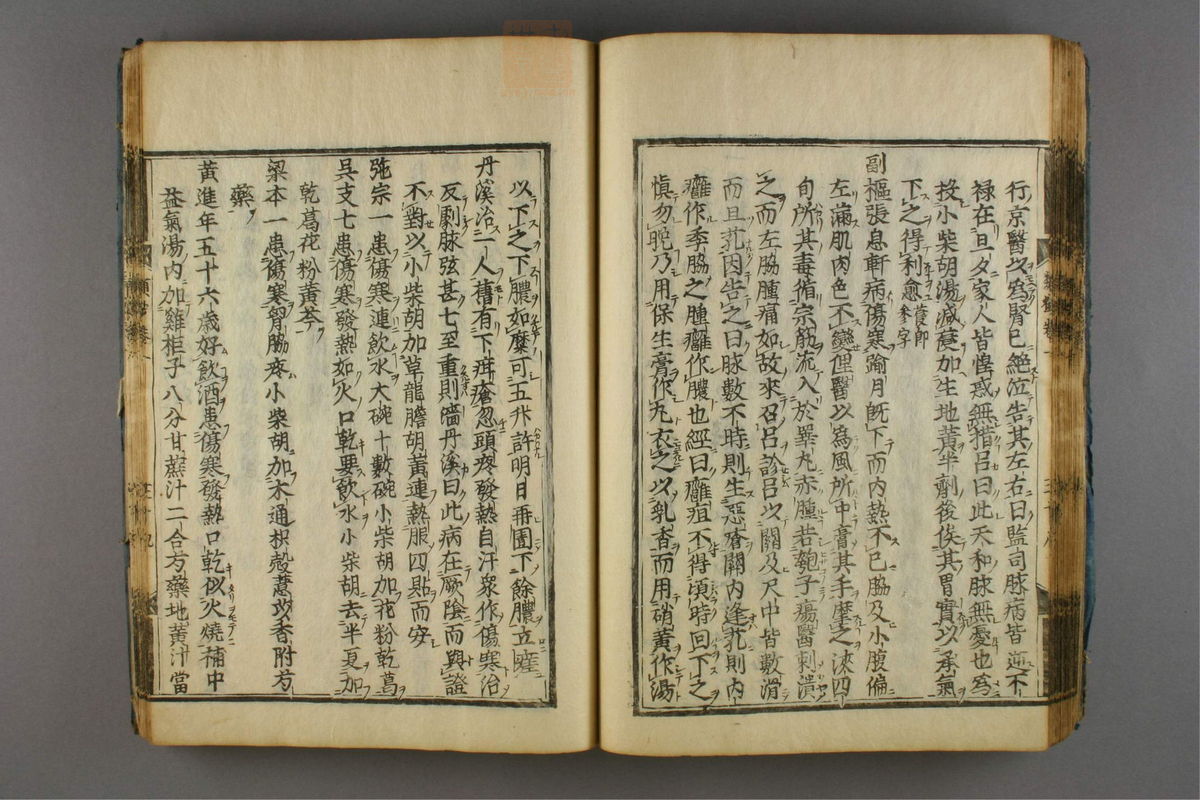 行京醫以為腎已絶泣告其左右曰監司脉病皆逆不
禄在旦夕家人皆惶惑無措呂曰此天和脉無憂也為
投小柴胡湯減蔆加生地黄半劑後俟其胃實以承氣
下之得利愈蔆即参字
副樞張息軒病傷寒踰月既下而内熱不已脇及小腹偏
左滿肌肉色不變俚醫以為風所中膏其手摩之浹四
旬所其毒循宗筋流入於睪丸赤腫若匏子瘍醫刺潰
之而左脇腫痛如故來召呂診呂以關及尺中皆數滑
而且芤因告之曰脉數不時則生惡瘡關内逢芤則内
癰作季脇之腫癰作膿也經曰癰疽不得頃時回下之
慎勿晩乃用保生膏作丸衣之以乳香而用硝黄作湯
以下之下膿如糜可五升許明日再圊下餘膿立瘥
丹溪治一人舊有下疳瘡忽頭疼發熱自汗衆作傷寒治
反劇脉弦甚七至重則嗇丹溪曰此病在厥陰而與證
不對以小柴胡加草龍膽胡黄連熱服四貼而安
弛宗一患傷寒連飲水大碗十數碗小柴胡加花粉乾葛
呉支七患傷寒發熱如火口乾要飲水小柴胡去半夏加
乾葛花粉黄芩
梁本一患傷寒胷脇疼小柴胡加木通枳殻薏苡香附方
藥
黄進年五十六歳好飲酒患傷寒發熱口乾似火燒補中
益氣湯内加雞柜子八分甘蔗汁二合方藥地黄汁當